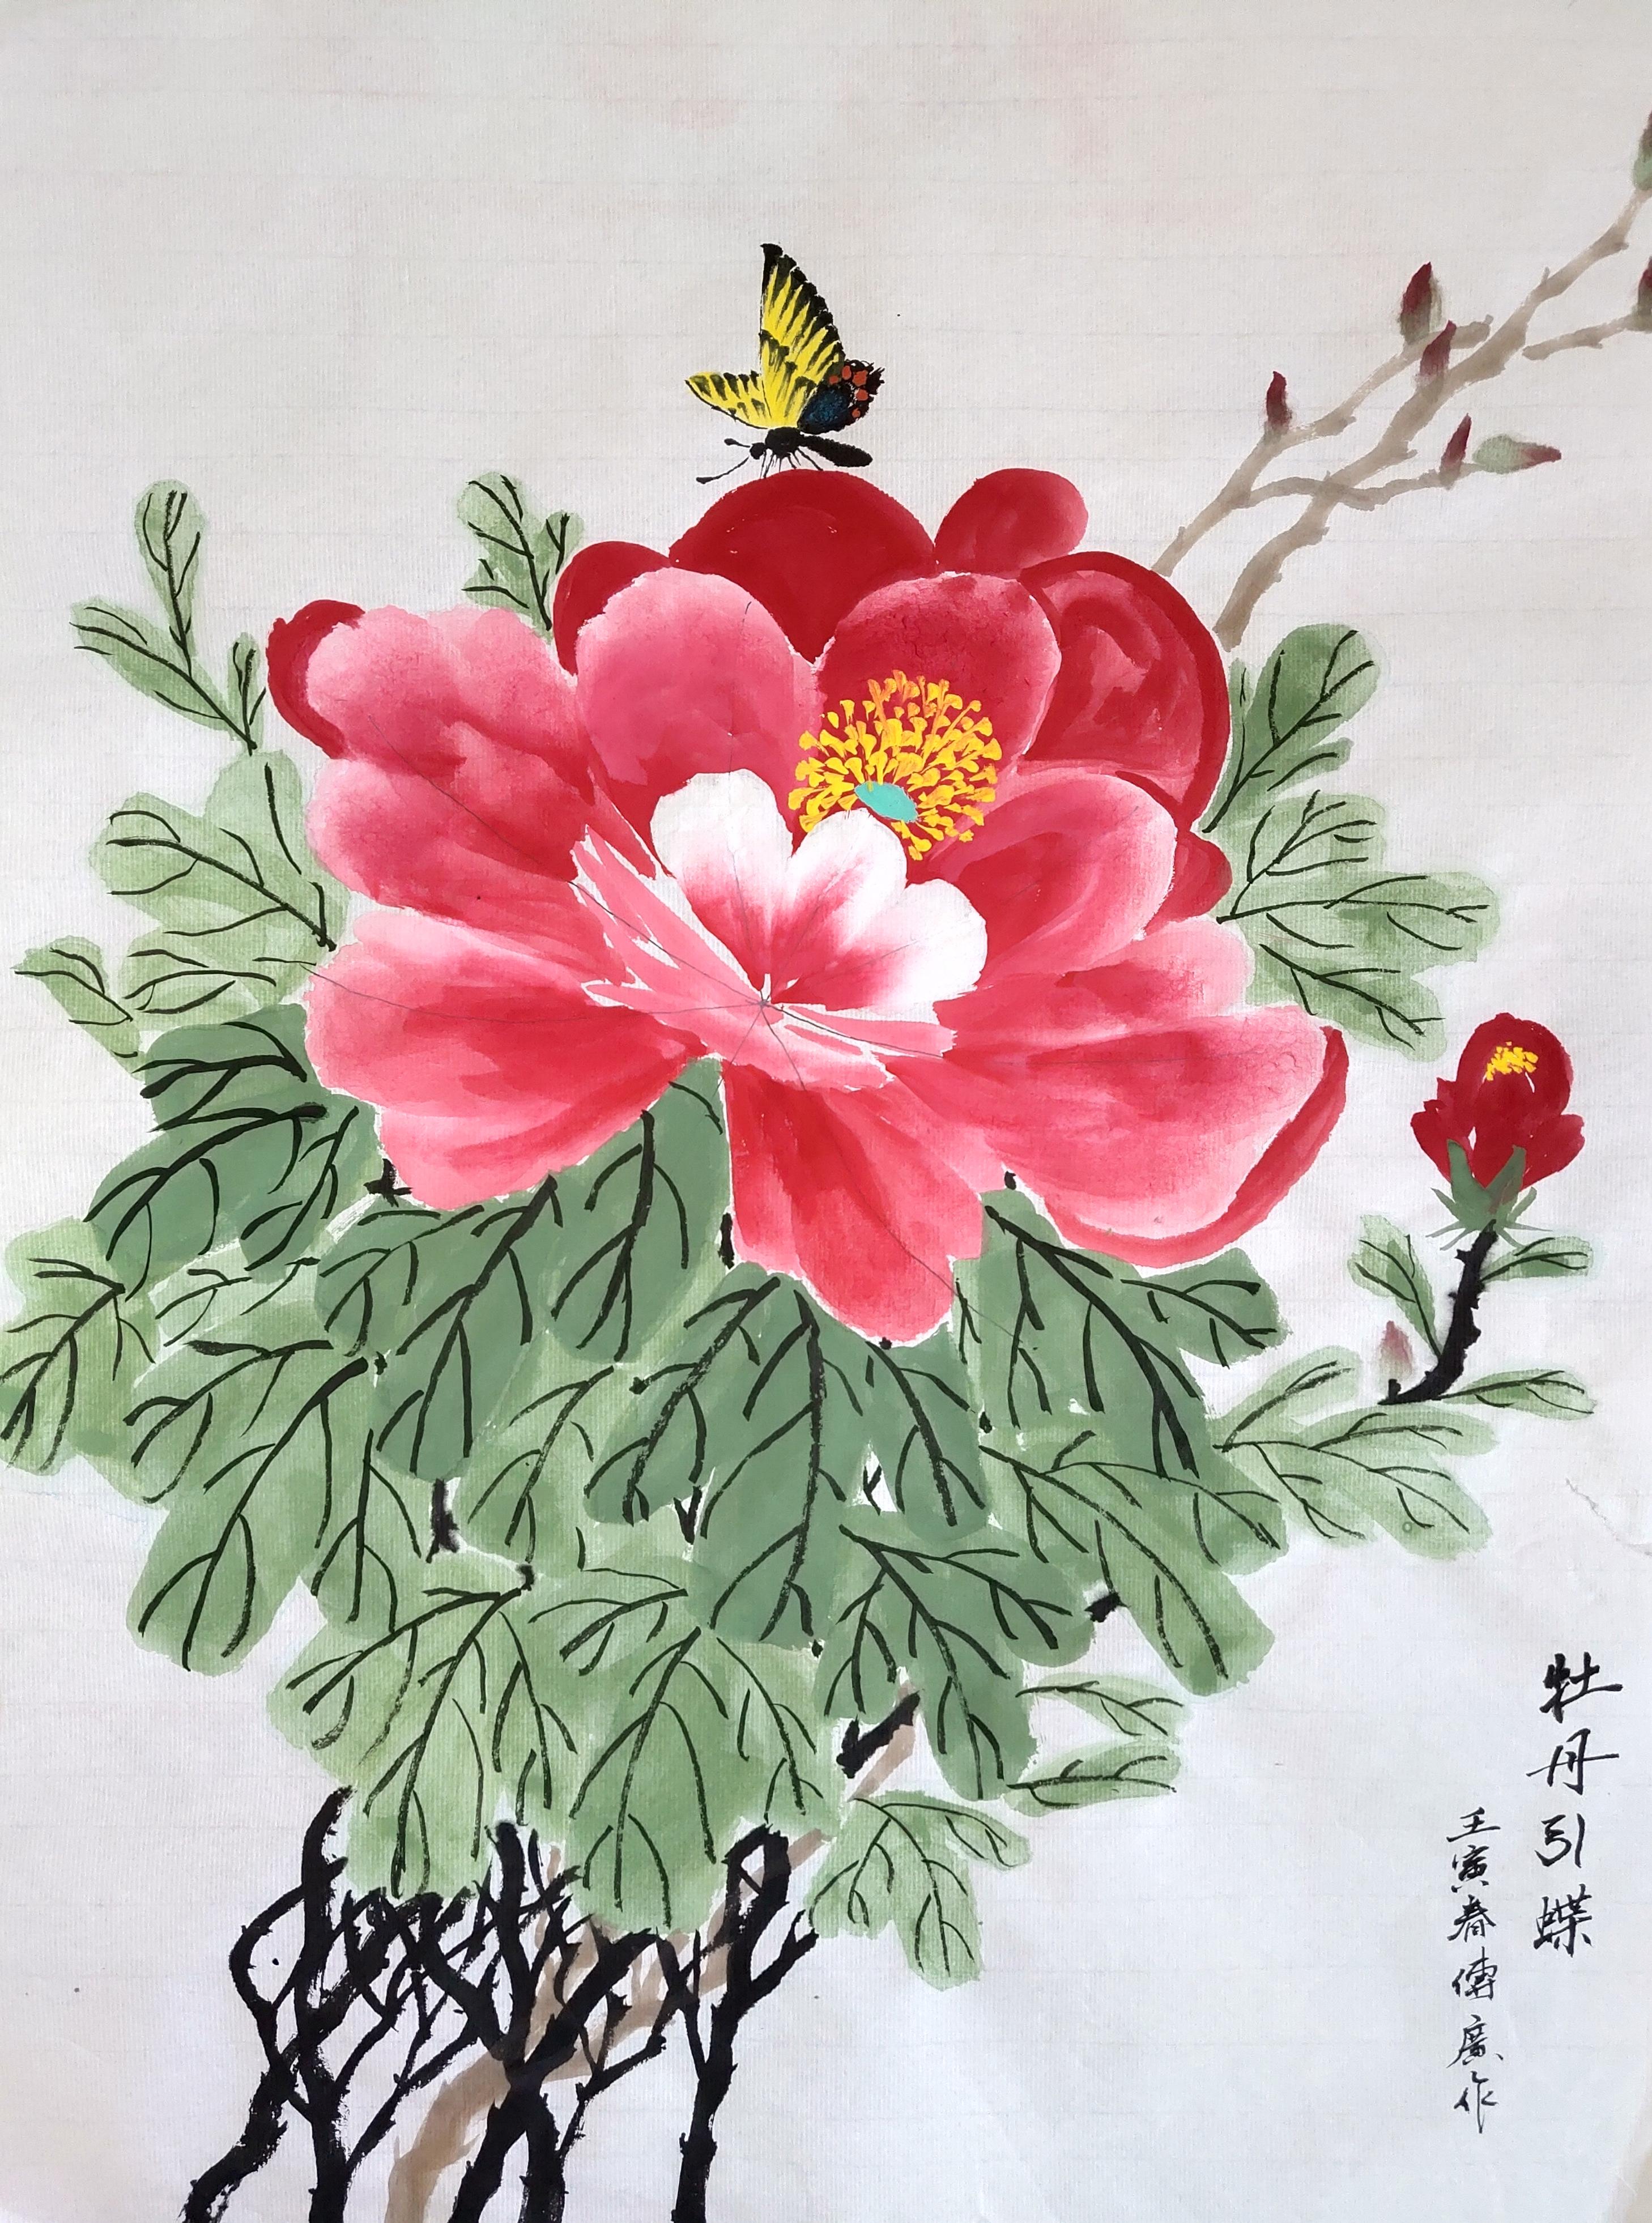 牡丹引蝶
壬寅春傅廣作